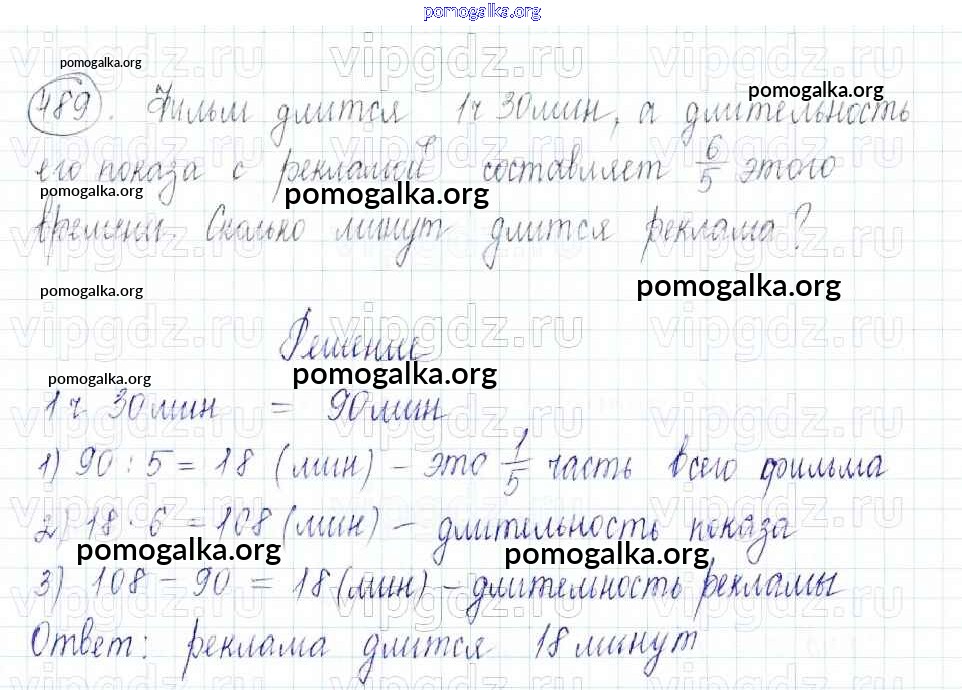 pomogalka.org
vipgdz.ru vipgdz.ru vipgdz.ru
pomogalka.org
489. Фильм длится 1ч 30мин, а длительность
pomogalka.org
его показа с рекламой составляет 6/5 этого
pomogalka.org pomogalka.org
времени. Сколько минут длится реклама?
pomogalka.org pomogalka.org
vipgdz.ru vipgdz.ru vipgdz.ru
Решение
pomogalka.org pomogalka.org
1ч 30мин = 90мин
1) 90 : 5 = 18 (мин) – это 1/5 часть всего фильма
2) 18 · 6 = 108 (мин) – длительность показа
pomogalka.org pomogalka.org
3) 108 – 90 = 18 (мин) – длительность рекламы
Ответ: реклама длится 18 минут